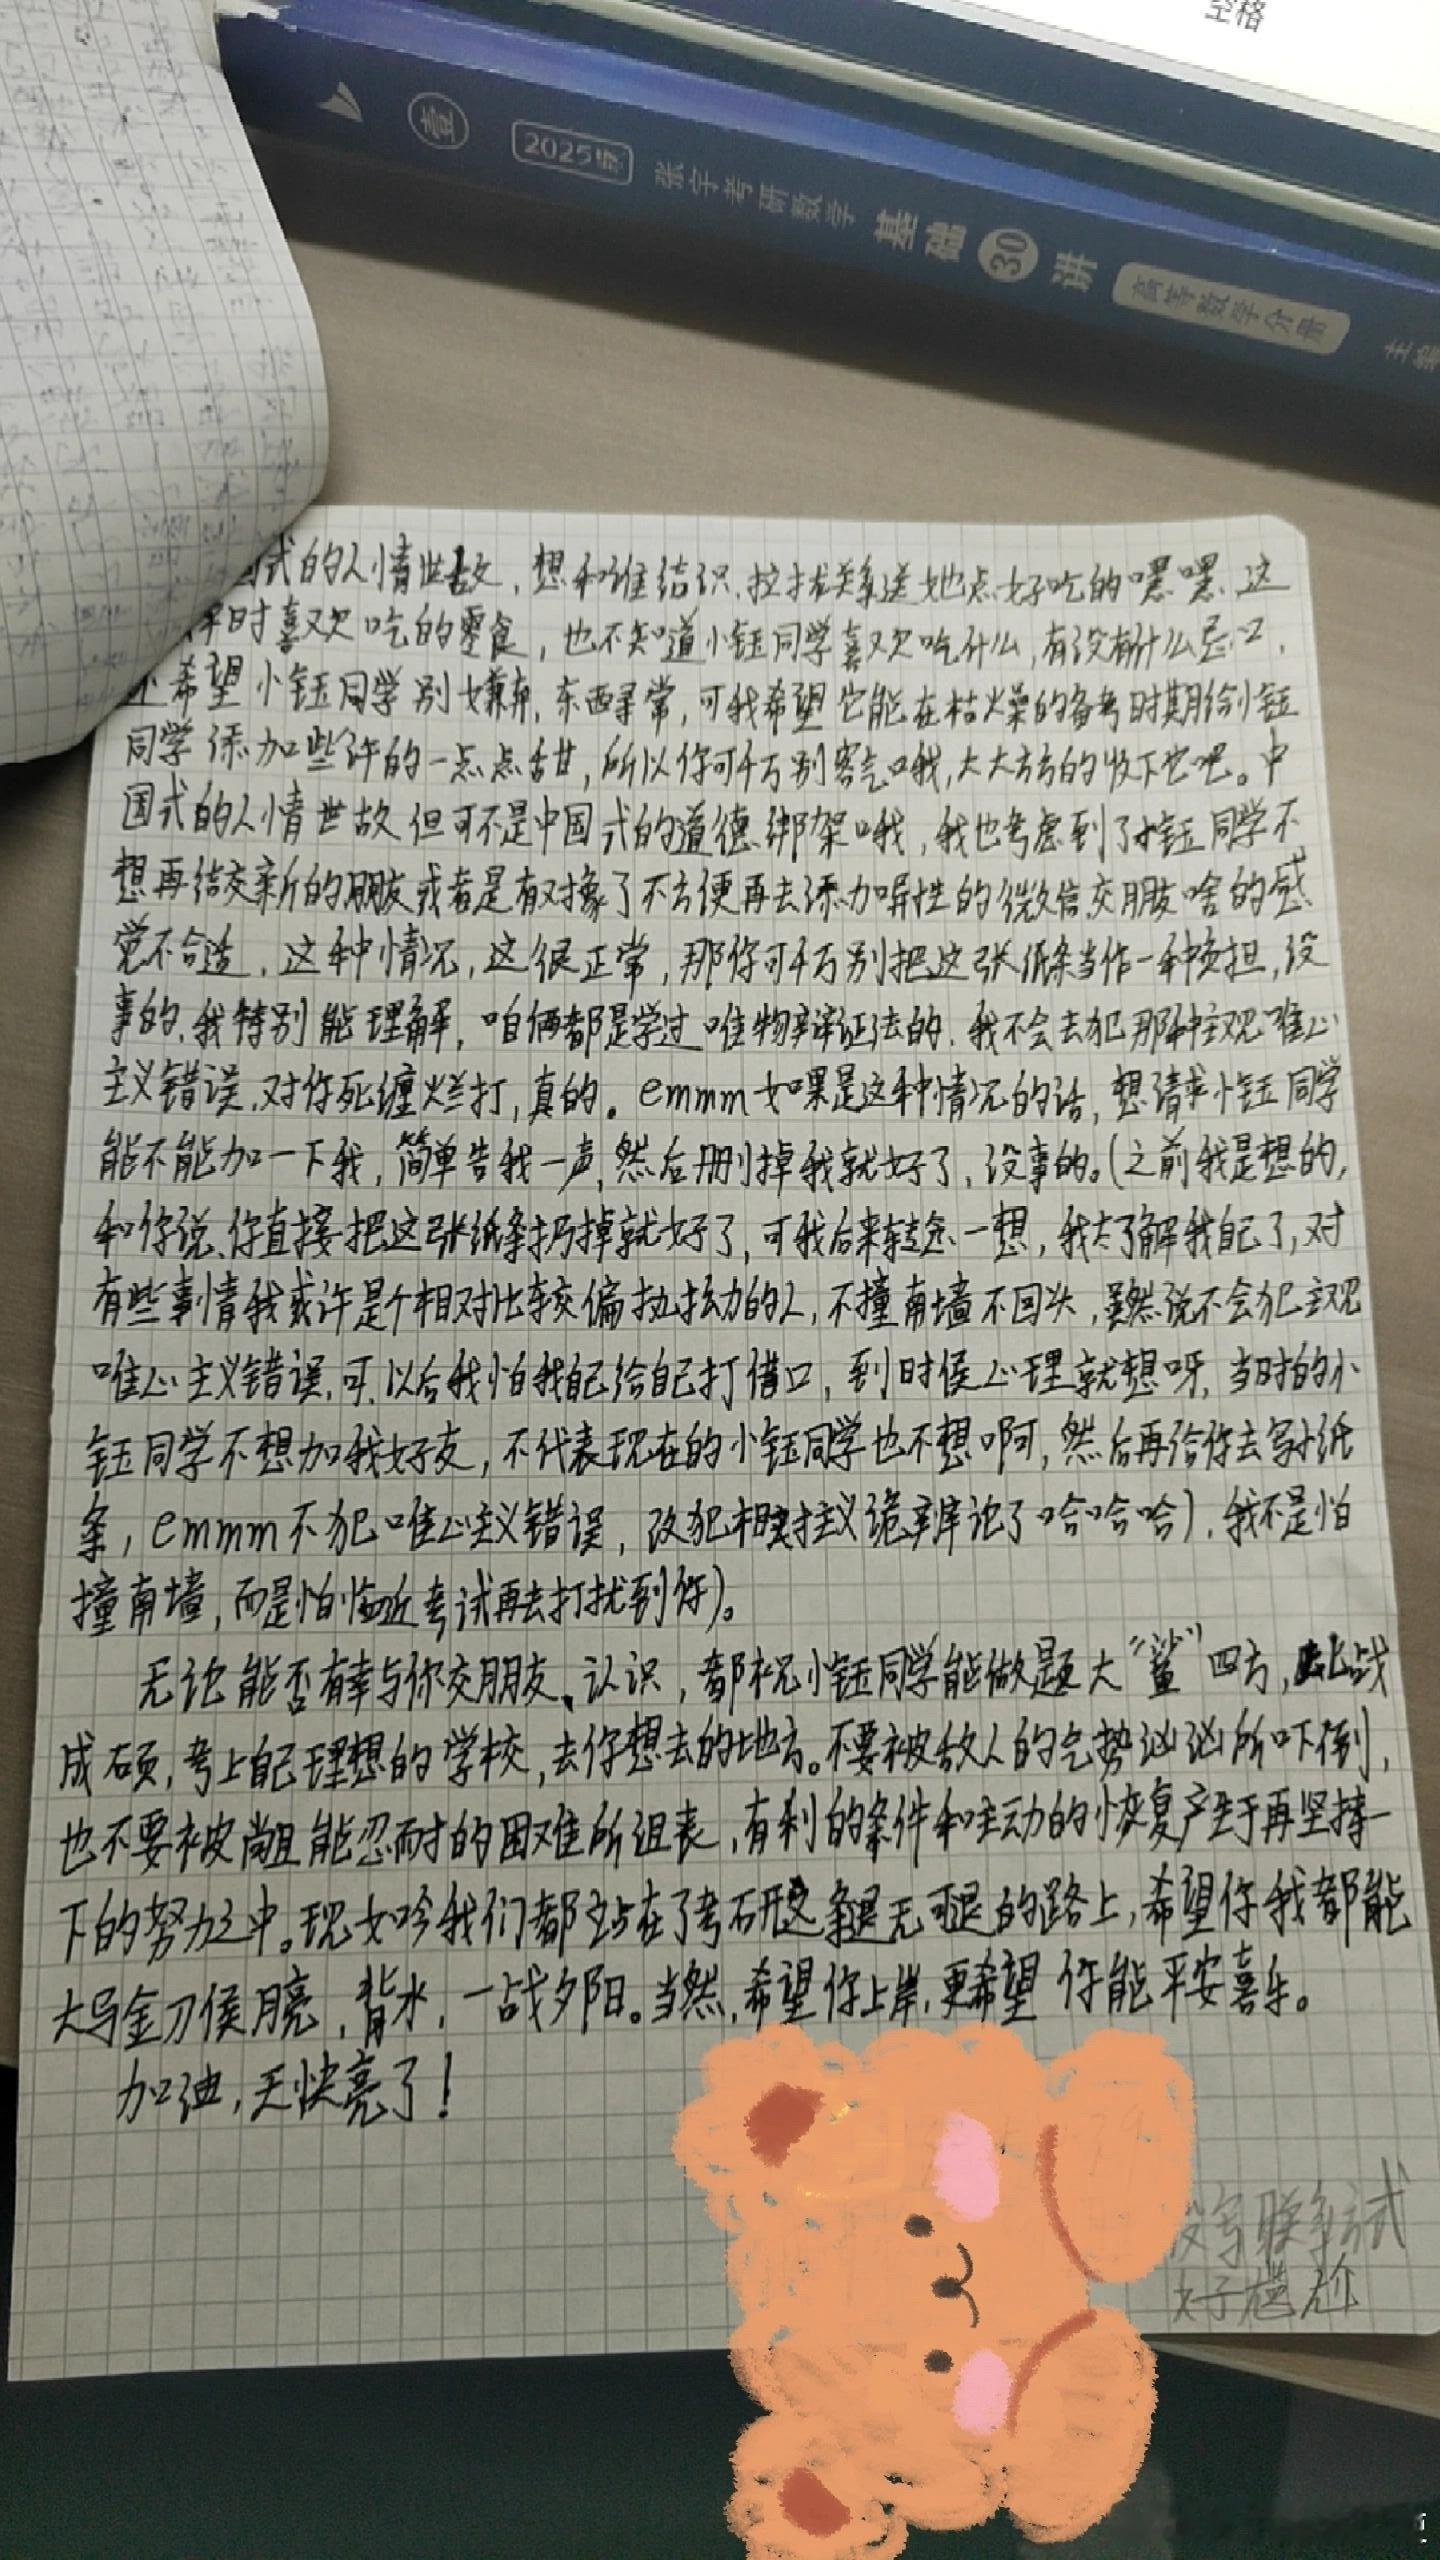 空格
壹 2025版 张宇考研数学 基础30讲 高等数学分册 主编
式的人情世故，想和谁结识、拉拢关系送她点好吃的嘿嘿、这
平时喜欢吃的零食，也不知道小钰同学喜欢吃什么，有没有什么忌口，
还希望小钰同学别嫌弃，东西寻常，可我希望它能在枯燥的备考时期给小钰
同学添加些许的一点点甜，所以你可千万别客气哦，大大方方的收下它吧。中
国式的人情世故但可不是中国式的道德绑架哦，我也考虑到了小钰同学不
想再结交新的朋友或者是有对象了不方便再去添加异性的微信交朋友啥的感
觉不合适，这种情况，这很正常，那你可千万别把这张纸条当作一种负担，没
事的、我特别能理解，咱俩都是学过唯物辩证法的、我不会去犯那种主观唯心
主义错误、对你死缠烂打，真的。emmm如果是这种情况的话，想请求小钰同学
能不能加一下我，简单告我一声，然后删掉我就好了，没事的。（之前我是想的，
和你说、你直接把这张纸条扔掉就好了，可我后来转念一想，我太了解我自己了，对
有些事情我或许是个相对比较偏执拗的人，不撞南墙不回头，虽然说不会犯主观
唯心主义错误，可以后我怕我自己给自己打借口，到时侯心理就想呀，当时的小
钰同学不想加我好友，不代表现在的小钰同学也不想啊，然后再给你去写小纸
条，emmm不犯唯心主义错误，改犯相对主义诡辩论了哈哈哈），我不是怕
撞南墙，而是怕临近考试再去打扰到你）。
无论能否有幸与你交朋友、认识，都祝小钰同学能做题大“鲨”四方，一战
成硕，考上自己理想的学校，去你想去的地方。不要被敌人的气势汹汹所吓倒，
也不要被尚且能忍耐的困难所沮丧，有利的条件和主动的恢复产生于再坚持一
下的努力之中。现如今我们都站在了考研这条退无可退的路上，希望你我都能
大写金刀侯月亮，背水，一战夕阳。当然，希望你上岸，更希望你能平安喜乐。
加油，天快亮了！
没写联系方式
好尴尬